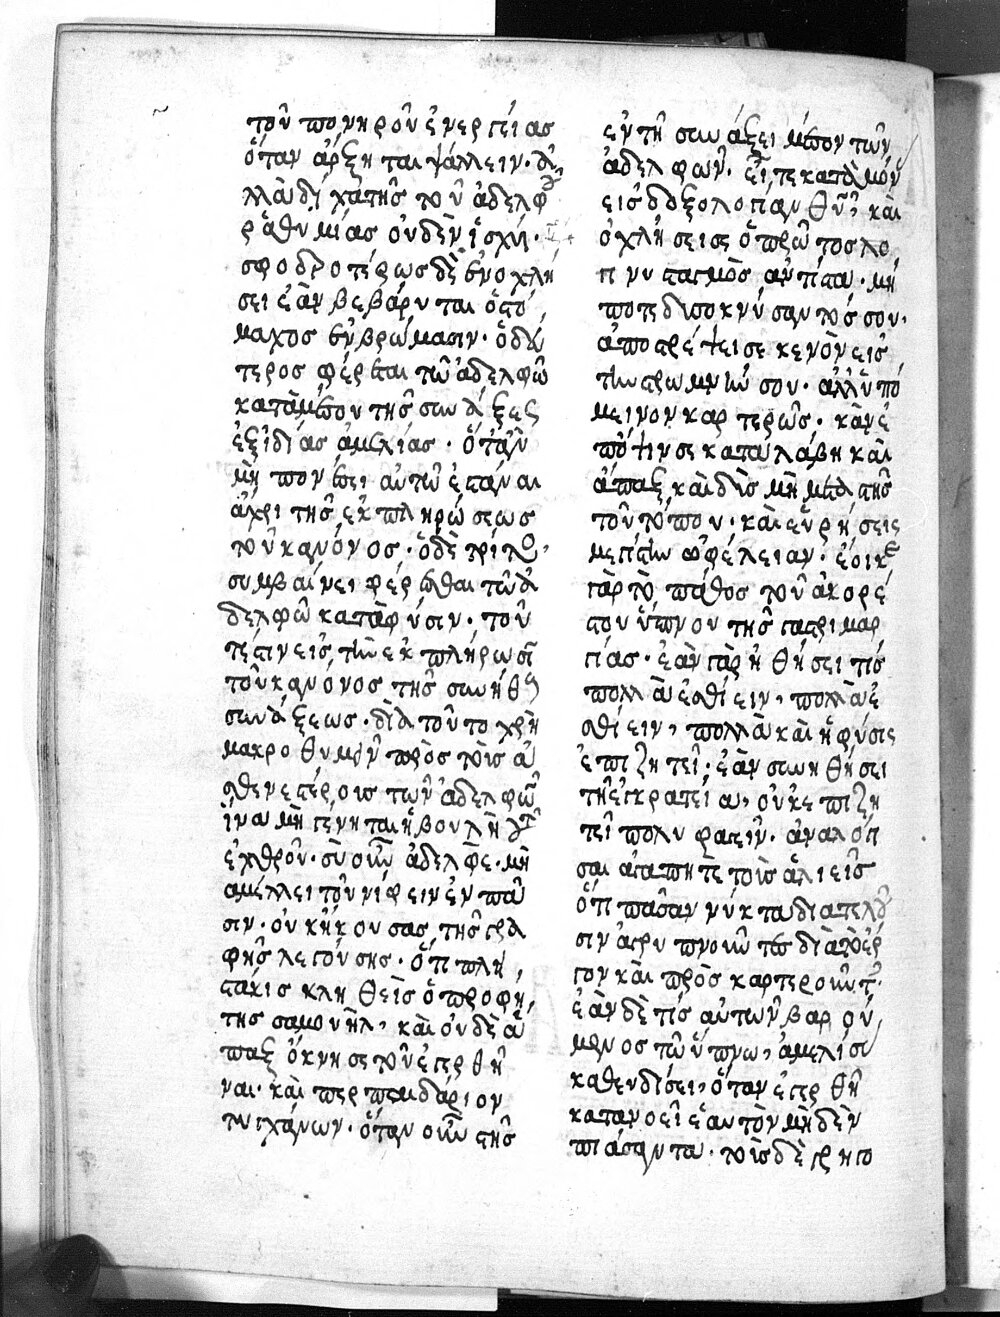 τοῦ πονηροῦ ἐνεργείας
ὅταν ἄρξηται ψάλλειν· ἀλ
λὰ διχα τῆς τοῦ ἀδελφοῦ
ῥαθυμίας οὐδὲν ἰσχύει·
σφοδροτέρως δὲ ἐνοχλή
σει ἐὰν βεβάρυται ὁ στό
μαχος ἐν βρώμασιν· ὁ δεύ
τερος φέρεται τῶ ἀδελφῶ
κατὰ μέσον τῆς συνάξεως
ἐξ ἰδίας ἀμελίας· ὅταν
μὴ πονέσει αὐτῶ ἐπᾶναι
ἄχρι τῆς ἐκπληρώσεως
τοῦ κανόνος· ὁ δὲ τρίτος
συμβαίνει φέρεσθαι τῶ ἀ
δελφῶ κατὰ φύσιν· τοῦ
τέστιν εἰς τὴν ἐκπλήρωσιν
τοῦ κανόνος τῆς συνήθους
συνάξεως· διὰ τοῦτο χρὴ
μακροθυμεῖν πρὸς τοῖς ἀ
σθενεστέροις τῶν ἀδελφῶν
ἵνα μὴ γένηται ἡ βουλὴ τοῦ
ἐχθροῦ· σὺ οὖν ἀδελφὲ· μὴ
ἀμέλλει τοῦ νίφειν ἐν πᾶ
σιν· οὐκ ἤκουσας τῆς γρα
φῆς λεγούσης· ὅτι πλη
στάκις κληθεὶς ὁ προφή
της σαμουὴλ· καὶ οὐδὲ ἅ
παξ ὄκνησε τοῦ ἐγερθῆ
ναι· καὶ περ παιδάριον
τυγχάνων· ὅταν οὖν στῆς
ἐν τῆ συνάξει μέσον τῶν
ἀδελφῶν· εἴτε καταμόνας
εἰς δοξολογίαν θεοῦ· καὶ
ὀχλήσει σε ὁ πρῶτος λο
γυσταγμὸς ἀντίστα· μή
ποτε δισοκνύσαντός σου·
ἀποστρέψει σε κενὸν εἰς
τὴν στρωμνήν σου· ἀλλ' ὑπό
μεινον καρτερῶς· κἂν ἐ
πόψιν σε καταλάβη καὶ
ἅπαξ καὶ δὶς μὴ μεταστῆς
τοῦ τόπου· καὶ εὑρήσεις
μεγίστην ὠφέλειαν· ἔοικε
γὰρ τὸ πάθος τοῦ ἀκορέ
στου ὕπνου τῆς γαστριμαρ
γίας· ἐὰν γὰρ ἠθήσει τίς
πολλὰ ἐσθίειν, πολλὰ ἐ
σθίειν, πολλὰ καὶ ἡ φύσις
ἐπιζητεῖ· ἐὰν συνηθήσει
τῆς ἐγκρατείας, οὐκ ἐπιζη
τεῖ πολὺ φαγεῖν· ἀναλόγι
σαι ἀγαπητὲ τοῖς ἁλιεῖς
ὅτι πᾶσαν νύκτα διατελοῦ
σιν ἀγρυπνοῦντες διὰ τὸ ἔρ
γον καὶ πρὸς καρτεροῦντες·
ἐὰν δὲ τίς αὐτῶν βαρού
μενος τῶ ὕπνω, ἀμελίσας
καθευδίσει, ὅταν ἐγερθῆ
κατανοεῖ ἑαυτὸν μὴ δὲν
πιάσαντα· τοῖς δὲ γρηγο